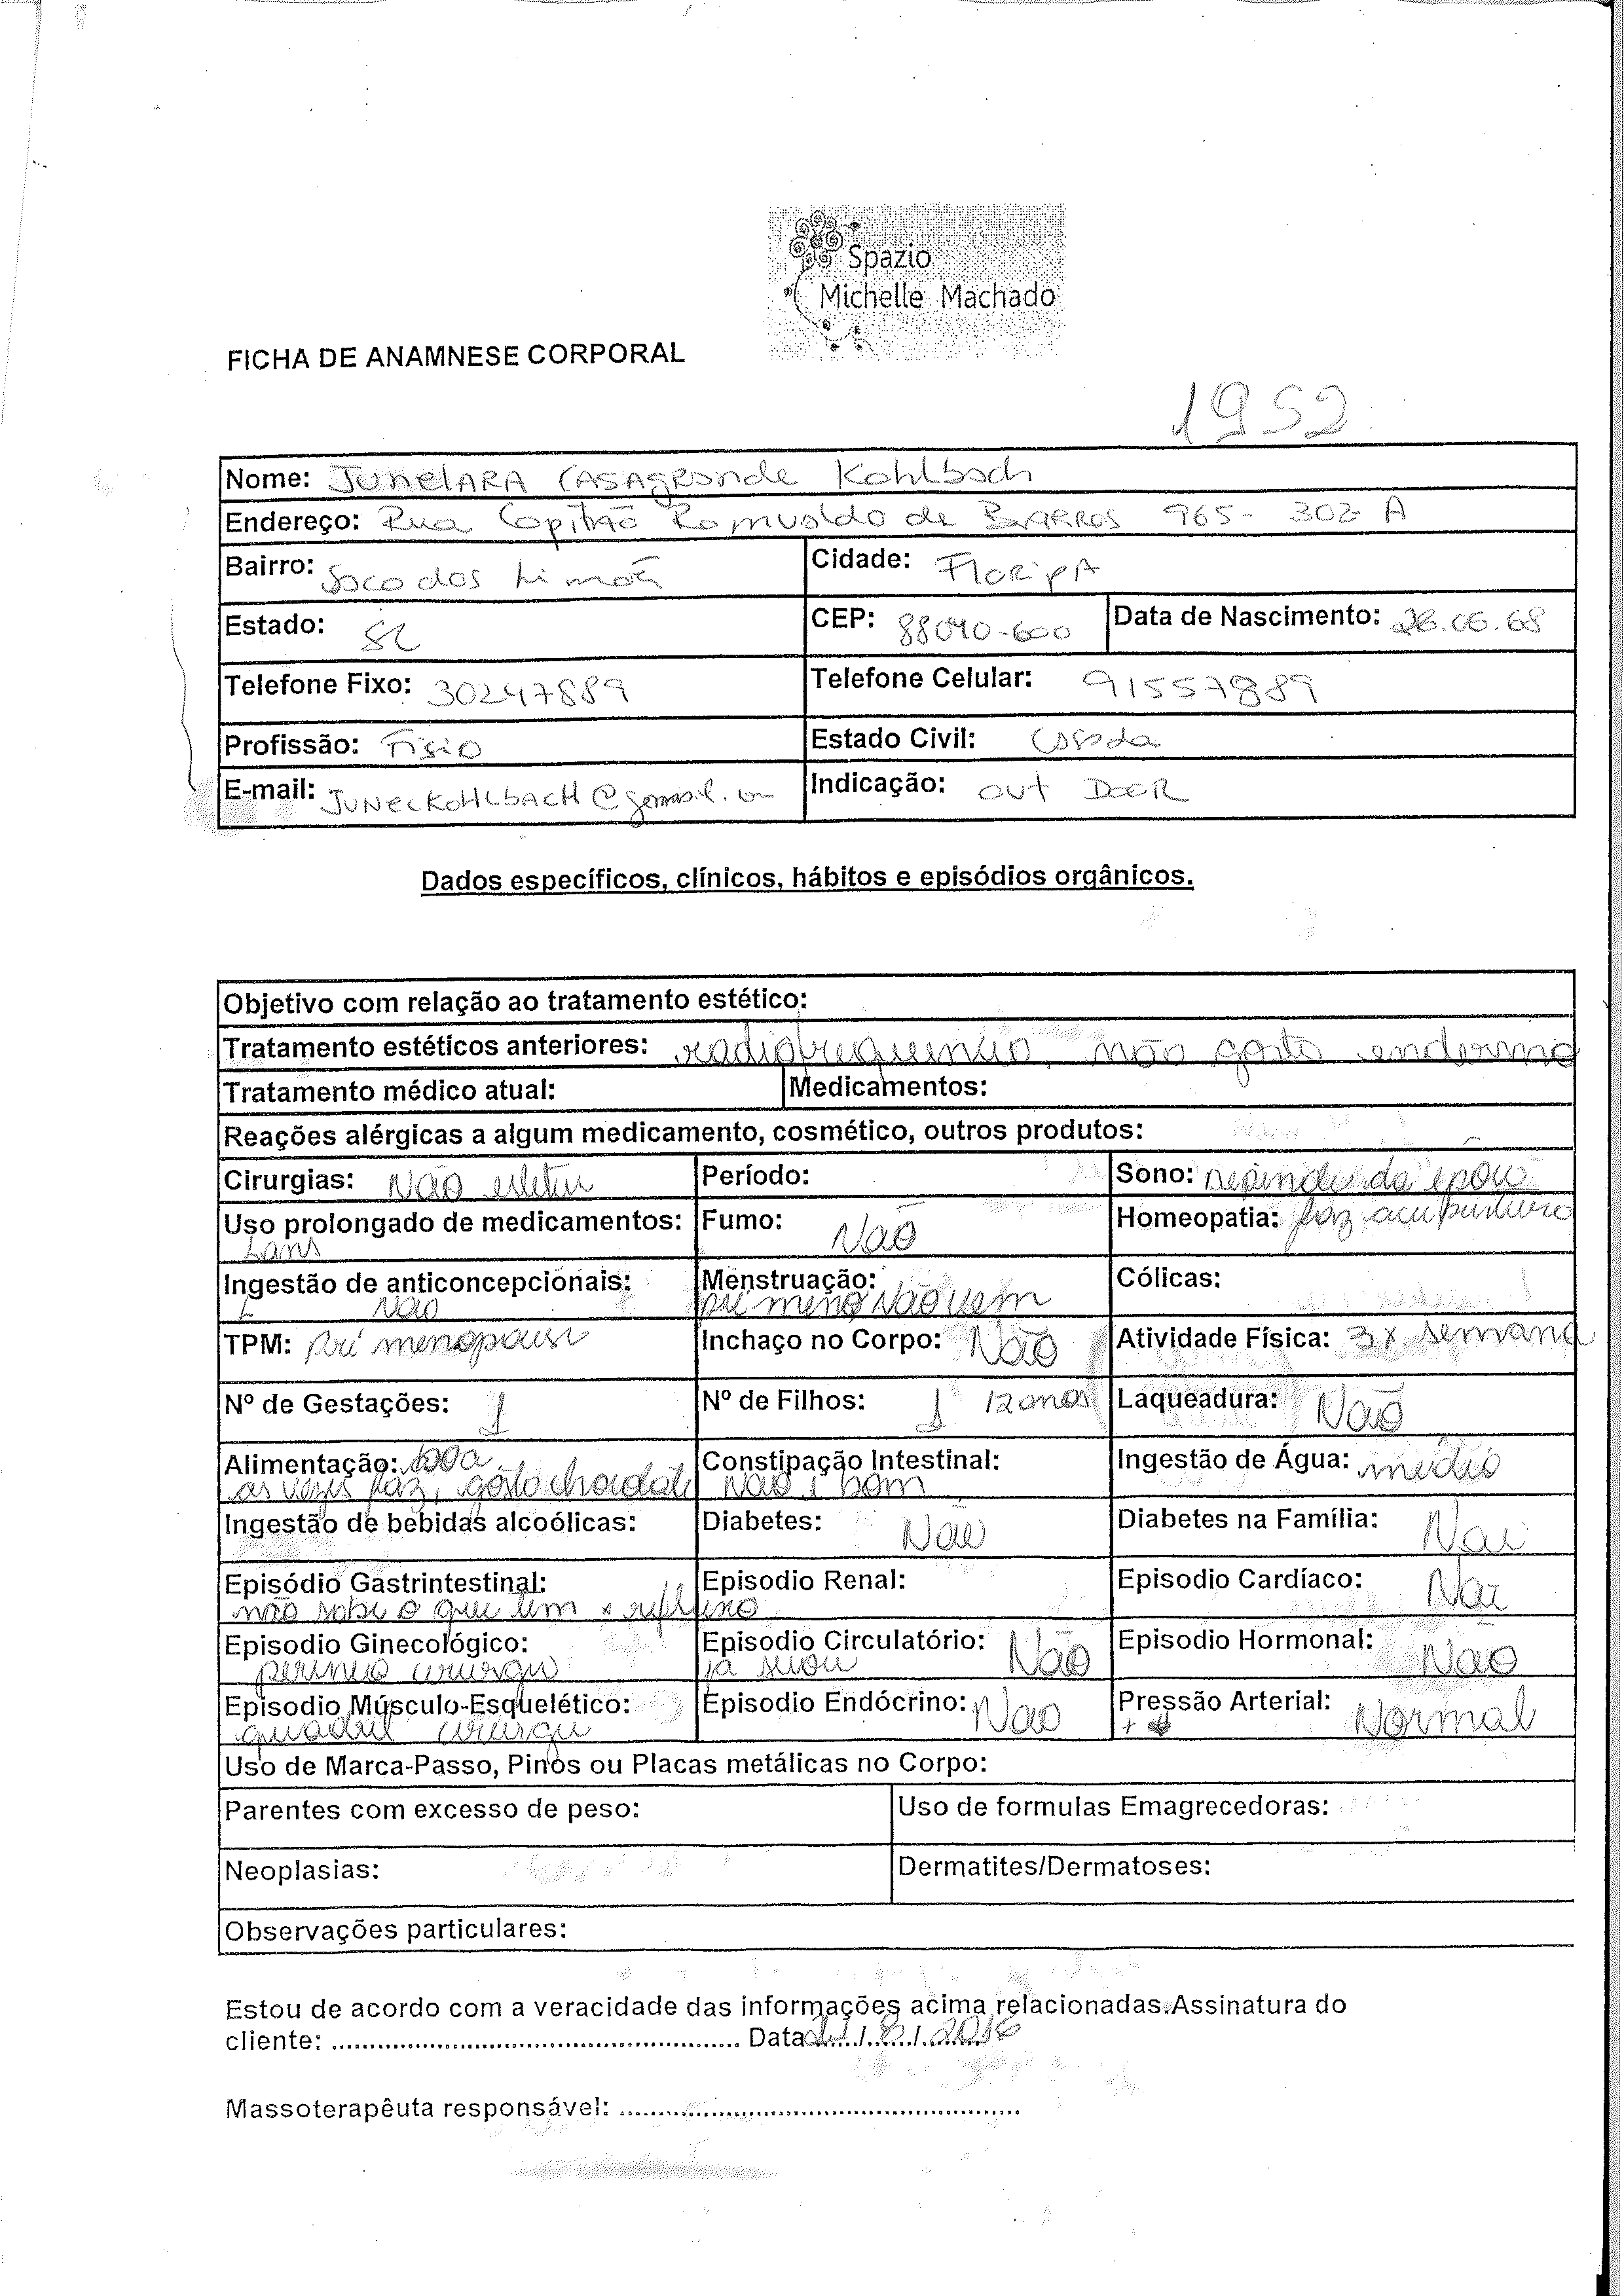 Spazio
Michelle Machado
FICHA DE ANAMNESE CORPORAL
1952
Nome: JUNEIARA CASAGRANDE Kohlbach
Endereço: Rua Capitão Romualdo de BARROS 965- 302 A
Bairro: Saco dos Limões Cidade: FloripA
Estado: SC CEP: 88040-600 Data de Nascimento: 26.06.68
Telefone Fixo: 30247889 Telefone Celular: 91557889
Profissão: Fisio Estado Civil: Casada
E-mail: JUNECKOHLBACH@gmail.com Indicação: out DOOR
Dados específicos, clínicos, hábitos e episódios orgânicos.
Objetivo com relação ao tratamento estético:
Tratamento estéticos anteriores: radiofrequencia, não gosta endermo
Tratamento médico atual: Medicamentos:
Reações alérgicas a algum medicamento, cosmético, outros produtos:
Cirurgias: Não Período: Sono: Depende da época
Uso prolongado de medicamentos: Fumo: Não Homeopatia: faz acupuntura
Ingestão de anticoncepcionais: Menstruação: Cólicas:
Não pré meno não vem
TPM: pré menopausa Inchaço no Corpo: Não Atividade Física: 3x semana
Nº de Gestações: 1 Nº de Filhos: 1 12 anos Laqueadura: Não
Alimentação: boa Constipação Intestinal: Ingestão de Água: médio
as vezes faz, gosta chocolate Não é bom
Ingestão de bebidas alcoólicas: Diabetes: Não Diabetes na Família: Não
Episódio Gastrintestinal: Episodio Renal: Episodio Cardíaco: Não
não sabe o que tem
Episodio Ginecológico: Episodio Circulatório: Não Episodio Hormonal: Não
perineo cirurgia já secou
Episodio Músculo-Esquelético: Episodio Endócrino: Não Pressão Arterial: Normal
quadril cirurgia
Uso de Marca-Passo, Pinos ou Placas metálicas no Corpo:
Parentes com excesso de peso: Uso de formulas Emagrecedoras:
Neoplasias: Dermatites/Dermatoses:
Observações particulares:
Estou de acordo com a veracidade das informações acima relacionadas.Assinatura do
cliente: ........................................................ Data 21/8/2016
Massoterapêuta responsável: ........................................................